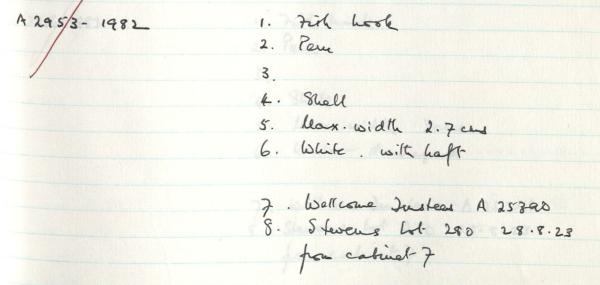 A 2953-1982 1. Fish hook
2. Peru
3.
4. Shell
5. Max. width 2.7 cms
6. White. with haft
7. Wellcome Trustees A 25790
8. Stevens Lot 280 28.8.23
from cabinet 7